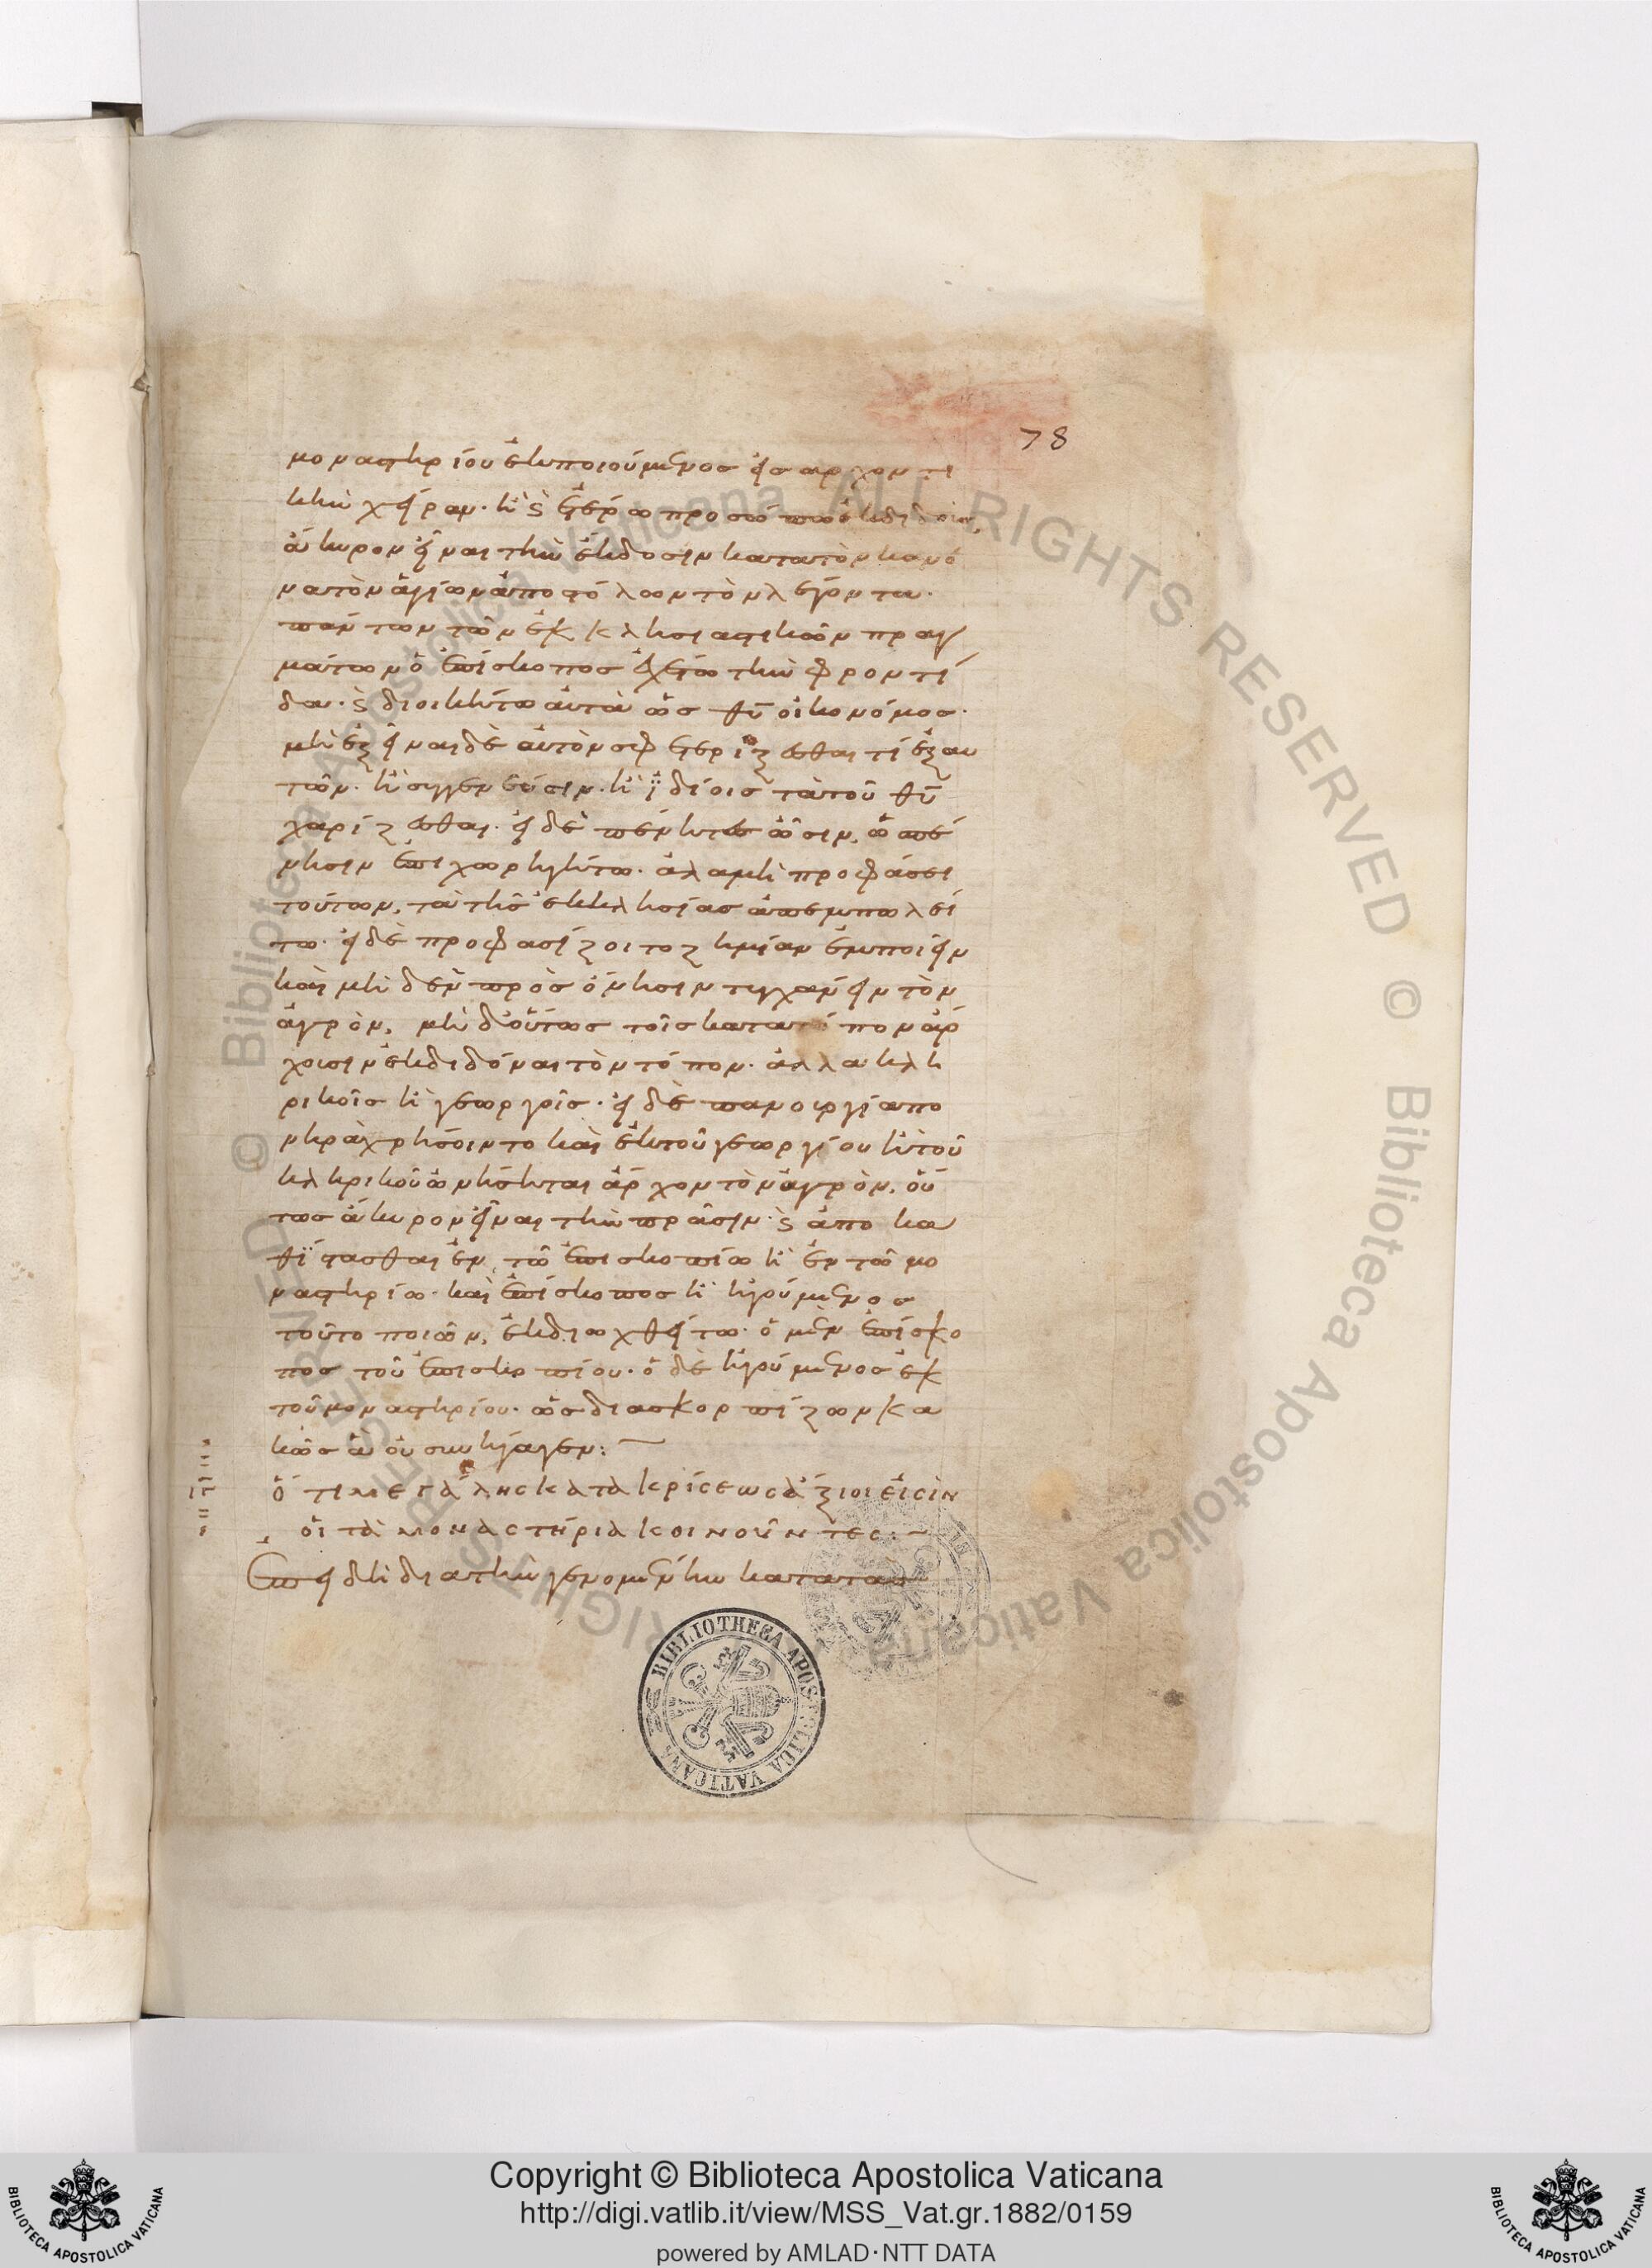 78
μοναστηρίου ἐκποιούμενος εἰς ἀρχοντι
κὴν χεῖραν· ἢ καὶ ἑτέρω προσώπω ἐκδιδοὺς,
ἄκυρον εἶναι τὴν ἔκδοσιν κατὰ τὸν κανό
να τὸν ἁγίων ἀποστόλων τὸν λέγοντα·
πάντων τῶν ἐκκλησιαστικῶν πραγ
μάτων ὁ ἐπίσκοπος ἐχέτω τὴν φροντί
δα· καὶ διοικήτω αὐτὰ ὡς θῦ οἰκονόμος·
μὴ ἐξεῖναι δὲ αὐτὸν σφετερίζεσθαι τί ἐξ αυ
τῶν· ἢ συγγενεῦσιν· ἢ ϊδίοις τὰ τοῦ θῦ
χαρίζεσθαι· εἰ δὲ πένητες ὦσιν, ὡς πέ
νησιν ἐπιχωρηγήτω· ἀλα μὴ προφάσει
τούτων, τὰ τῆς ἐκκλησίας ἀπεμπωλεί
τω· εἰ δὲ προφασίζοιτο ζημίαν ἐμποιεῖν
καὶ μὴ δὲν πρὸς ὄνησιν τυγχάνειν τὸν
ἀγρὸν, μὴ δ' οὕτως τοῖς κατὰ τόπον ἄρ
χουσιν ἐκδιδόναι τὸν τόπον· ἀλλα κλη
ρικοῖς ἢ γεωργοῖς· εἰ δὲ πανουργία πο
νηρὰ χρήσοιντο καὶ ἐκ τοῦ γεωργίου ἢ τοῦ
κληρικοῦ ὠνήσηται ἄρχον τὸν ἀγρὸν, οὕ
τως ἄκυρον εἶναι τὴν πρᾶσιν· καὶ ἀποκα
θΐστασθαι ἐν τῶ ἐπισκοπίω ἢ ἐν τῶ μο
ναστηρίω· καὶ ἐπίσκοπος ἢ ἡγούμενος
τοῦτο ποιῶν, ἐκδιωχθήτω· ὁ μὲν ἐπίσκο
πος τοῦ ἐπισκοπίου· ὁ δὲ ἡγούμενος ἐκ
τοῦ μοναστηρίου· ὡς διασκορπίζων κα
κῶς ἃ οὐ συνήγαγεν:
ὅτι μεγάλης κατακρίσεως ἄξιοι εἰσὶν
οἱ τὰ μοναστήρια κοινοῦντες:
Ἐπειδὴ διὰ τὴν γενομένην κατὰ τὰς
BIBLIOTHECA APOSTOLICA VATICANA
© Biblioteca Apostolica Vaticana ALL RIGHTS RESERVED
Copyright © Biblioteca Apostolica Vaticana
http://digi.vatlib.it/view/MSS_Vat.gr.1882/0159
powered by AMLAD·NTT DATA
BIBLIOTECA APOSTOLICA VATICANA
BIBLIOTECA APOSTOLICA VATICANA